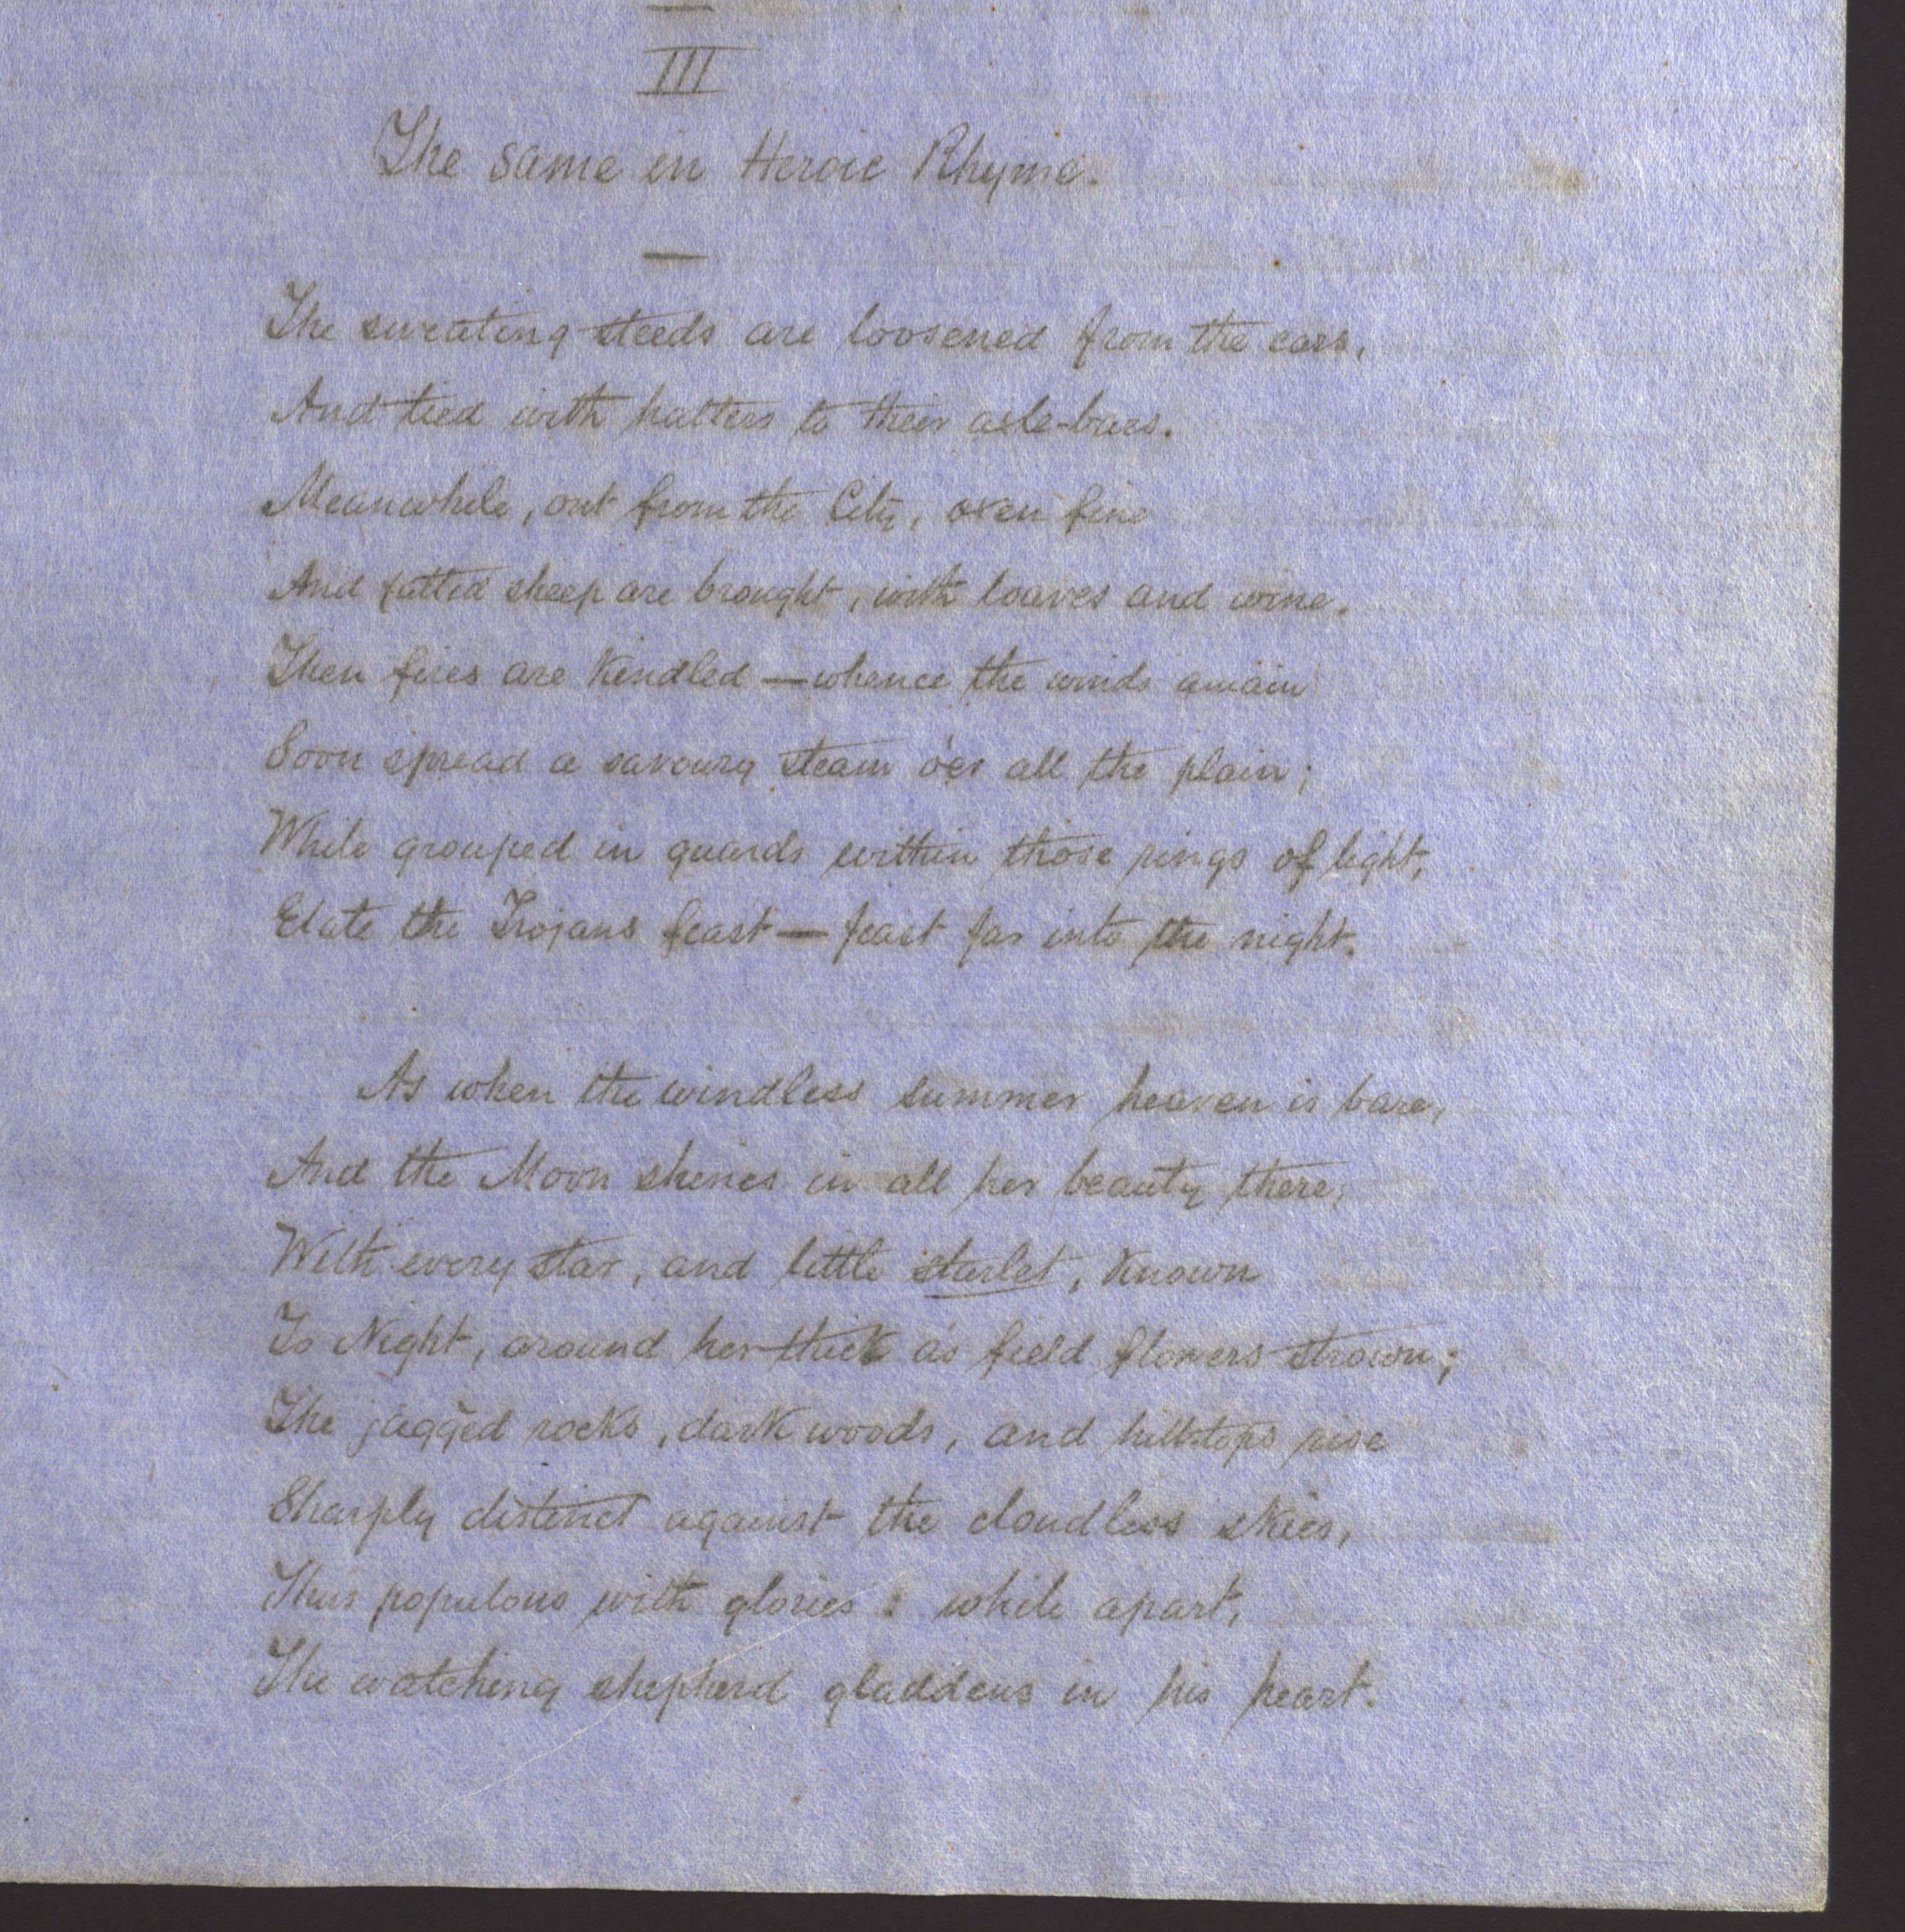 III
The same in Heroic Rhyme.
The sweating steeds are loosened from the cars,
And tied with halters to their axle-bars.
Meanwhile, out from the City, oxen fine
And fatted sheep are brought, with loaves and wine.
Then fires are kindled — whence the winds amain
Soon spread a savoury steam o'er all the plain;
While grouped in guards within those rings of light,
Elate the Trojans feast — feast far into the night.
As when the windless summer heaven is bare,
And the Moon shines in all her beauty there,
With every star, and little starlet, known
To Night, around her thick as field flowers strown;
The jagged rocks, dark woods, and hill-tops rise
Sharply distinct against the cloudless skies,
Thus populous with glories: while apart,
The watching shepherd gladdens in his heart.